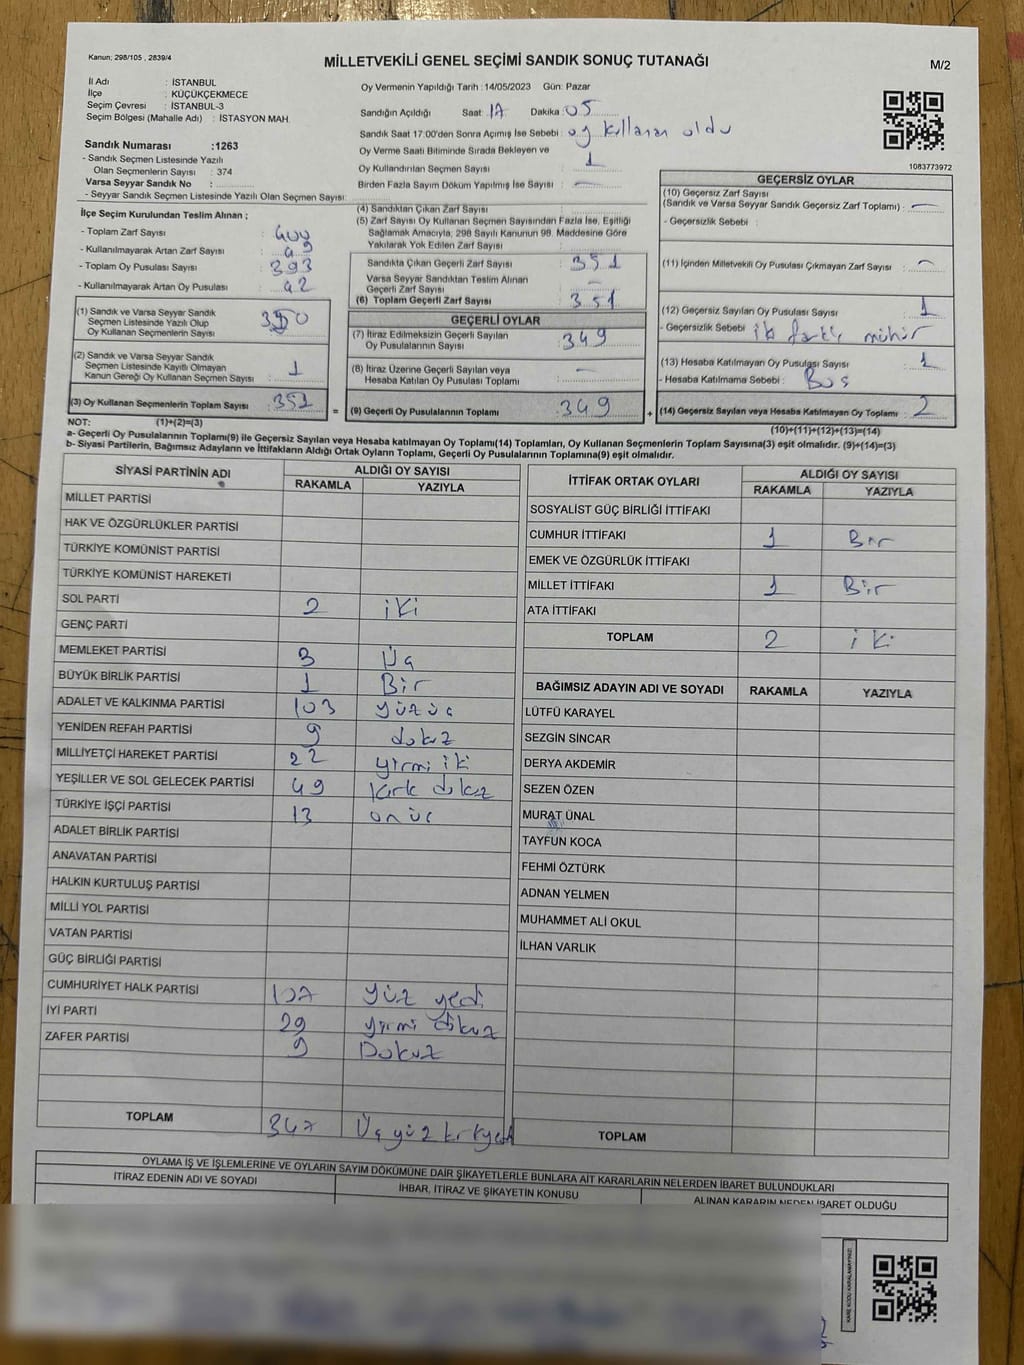 Kanun; 298/105 , 2839/4
MİLLETVEKİLİ GENEL SEÇİMİ SANDIK SONUÇ TUTANAĞI
M/2
İl Adı : İSTANBUL
İlçe : KÜÇÜKÇEKMECE
Seçim Çevresi : İSTANBUL-3
Seçim Bölgesi (Mahalle Adı) : İSTASYON MAH.
Sandık Numarası :1263
- Sandık Seçmen Listesinde Yazılı
Olan Seçmenlerin Sayısı : 374
Varsa Seyyar Sandık No :
- Seyyar Sandık Seçmen Listesinde Yazılı Olan Seçmen Sayısı:
Oy Vermenin Yapıldığı Tarih : 14/05/2023 Gün: Pazar
Sandığın Açıldığı Saat : 17 Dakika : 05
Sandık Saat 17:00'den Sonra Açımış İse Sebebi : oy kullanan oldu
Oy Verme Saati Bitiminde Sırada Bekleyen ve
Oy Kullandırılan Seçmen Sayısı : 1
Birden Fazla Sayım Döküm Yapılmış İse Sayısı : —
1083773972
İlçe Seçim Kurulundan Teslim Alınan ;
- Toplam Zarf Sayısı : 400
- Kullanılmayarak Artan Zarf Sayısı : 49
- Toplam Oy Pusulası Sayısı : 393
- Kullanılmayarak Artan Oy Pusulası : 42
(1) Sandık ve Varsa Seyyar Sandık
Seçmen Listesinde Yazılı Olup
Oy Kullanan Seçmenlerin Sayısı : 350
(2) Sandık ve Varsa Seyyar Sandık
Seçmen Listesinde Kayıtlı Olmayan
Kanun Gereği Oy Kullanan Seçmen Sayısı : 1
(3) Oy Kullanan Seçmenlerin Toplam Sayısı : 351
(1)+(2)=(3)
(4) Sandıktan Çıkan Zarf Sayısı :
(5) Zarf Sayısı Oy Kullanan Seçmen Sayısından Fazla İse, Eşitliği
Sağlamak Amacıyla, 298 Sayılı Kanunun 98. Maddesine Göre
Yakılarak Yok Edilen Zarf Sayısı :
Sandıkta Çıkan Geçerli Zarf Sayısı : 351
Varsa Seyyar Sandıktan Teslim Alınan
Geçerli Zarf Sayısı : —
(6) Toplam Geçerli Zarf Sayısı : 351
GEÇERLİ OYLAR
(7) İtiraz Edilmeksizin Geçerli Sayılan
Oy Pusulalarının Sayısı : 349
(8) İtiraz Üzerine Geçerli Sayılan veya
Hesaba Katılan Oy Pusulası Toplamı : —
= (9) Geçerli Oy Pusulalarının Toplamı : 349
GEÇERSİZ OYLAR
(10) Geçersiz Zarf Sayısı
(Sandık ve Varsa Seyyar Sandık Geçersiz Zarf Toplamı) : —
- Geçersizlik Sebebi :
(11) İçinden Milletvekili Oy Pusulası Çıkmayan Zarf Sayısı : —
(12) Geçersiz Sayılan Oy Pusulası Sayısı : 1
- Geçersizlik Sebebi : iki farklı mühür
(13) Hesaba Katılmayan Oy Pusulası Sayısı : 1
- Hesaba Katılmama Sebebi : Boş
+ (14) Geçersiz Sayılan veya Hesaba Katılmayan Oy Toplamı : 2
(10)+(11)+(12)+(13)=(14)
NOT:
a- Geçerli Oy Pusulalarının Toplamı(9) ile Geçersiz Sayılan veya Hesaba katılmayan Oy Toplamı(14) Toplamları, Oy Kullanan Seçmenlerin Toplam Sayısına(3) eşit olmalıdır. (9)+(14)=(3)
b- Siyasi Partilerin, Bağımsız Adayların ve İttifakların Aldığı Ortak Oyların Toplamı, Geçerli Oy Pusulalarının Toplamına(9) eşit olmalıdır.
SİYASİ PARTİNİN ADI ALDIĞI OY SAYISI
RAKAMLA YAZIYLA
MİLLET PARTİSİ
HAK VE ÖZGÜRLÜKLER PARTİSİ
TÜRKİYE KOMÜNİST PARTİSİ
TÜRKİYE KOMÜNİST HAREKETİ
SOL PARTİ 2 iki
GENÇ PARTİ
MEMLEKET PARTİSİ 3 Üç
BÜYÜK BİRLİK PARTİSİ 1 Bir
ADALET VE KALKINMA PARTİSİ 103 yüzüç
YENİDEN REFAH PARTİSİ 9 dokuz
MİLLİYETÇİ HAREKET PARTİSİ 22 yirmi iki
YEŞİLLER VE SOL GELECEK PARTİSİ 49 kırk dokuz
TÜRKİYE İŞÇİ PARTİSİ 13 onüç
ADALET BİRLİK PARTİSİ
ANAVATAN PARTİSİ
HALKIN KURTULUŞ PARTİSİ
MİLLİ YOL PARTİSİ
VATAN PARTİSİ
GÜÇ BİRLİĞİ PARTİSİ
CUMHURİYET HALK PARTİSİ 107 yüz yedi
İYİ PARTİ 29 yirmi dokuz
ZAFER PARTİSİ 9 Dokuz
TOPLAM 347 Üçyüz kırkyedi
İTTİFAK ORTAK OYLARI ALDIĞI OY SAYISI
RAKAMLA YAZIYLA
SOSYALİST GÜÇ BİRLİĞİ İTTİFAKI
CUMHUR İTTİFAKI 1 Bir
EMEK VE ÖZGÜRLÜK İTTİFAKI
MİLLET İTTİFAKI 1 Bir
ATA İTTİFAKI
TOPLAM 2 iki
BAĞIMSIZ ADAYIN ADI VE SOYADI RAKAMLA YAZIYLA
LÜTFÜ KARAYEL
SEZGİN SİNCAR
DERYA AKDEMİR
SEZEN ÖZEN
MURAT ÜNAL
TAYFUN KOCA
FEHMİ ÖZTÜRK
ADNAN YELMEN
MUHAMMET ALİ OKUL
İLHAN VARLIK
TOPLAM
OYLAMA İŞ VE İŞLEMLERİNE VE OYLARIN SAYIM DÖKÜMÜNE DAİR ŞİKAYETLERLE BUNLARA AİT KARARLARIN NELERDEN İBARET BULUNDUKLARI
İTİRAZ EDENİN ADI VE SOYADI İHBAR, İTİRAZ VE ŞİKAYETİN KONUSU ALINAN KARARIN NEDEN İBARET OLDUĞU
KARE KODU KARALAMAYINIZ!